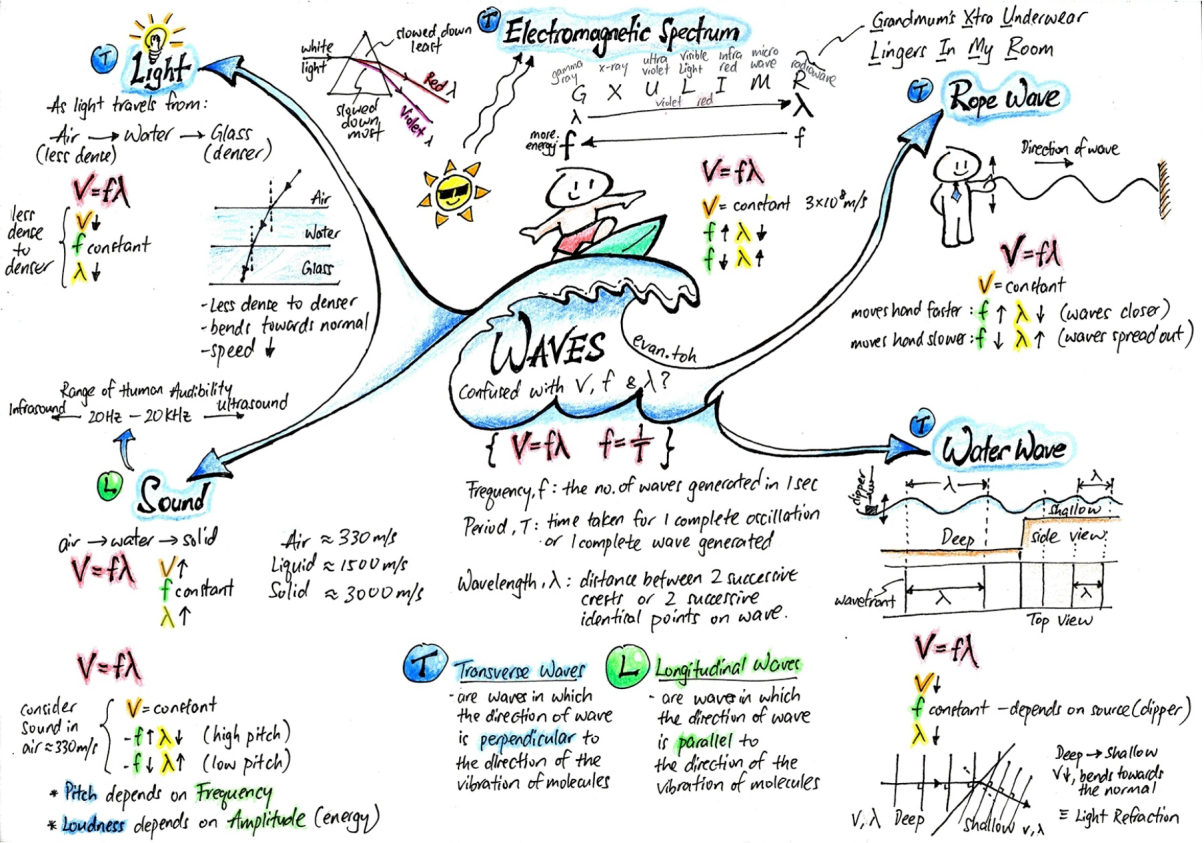 T
Light
As light travels from:
Air → Water → Glass
(less dense) (denser)
V=fλ
less dense to denser
V↓
f constant
λ↓
Air
Water
Glass
-Less dense to denser
-bends towards normal
-speed ↓
white light
slowed down least
slowed down most
Red λ
Violet λ
T
Electromagnetic Spectrum
gamma ray
x-ray
ultra violet
visible Light
Infra red
micro wave
radiowave
G X U L I M R
violet red
λ → λ
more energy f ← f
Grandmum's Xtra Underwear
Lingers In My Room
V=fλ
V= constant 3×10⁸m/s
f↑ λ↓
f↓ λ↑
T
Rope Wave
Direction of wave
V=fλ
V=constant
moves hand faster: f↑ λ↓ (waves closer)
moves hand slower: f↓ λ↑ (waves spread out)
WAVES
evan.toh
Confused with V, f & λ?
{ V=fλ f=1/T }
Frequency, f: the no. of waves generated in 1 sec
Period, T: time taken for 1 complete oscillation
or 1 complete wave generated
Wavelength, λ: distance between 2 successive
crests or 2 successive
identical points on wave.
Range of Human Audibility
Infrasound ← 20Hz – 20KHz → ultrasound
L
Sound
air → water → solid
V=fλ
V↑
f constant
λ↑
Air ≈ 330m/s
Liquid ≈ 1500m/s
Solid ≈ 3000m/s
V=fλ
consider
Sound in
air≈330m/s
V=constant
-f↑ λ↓ (high pitch)
-f↓ λ↑ (low pitch)
* Pitch depends on Frequency
* Loudness depends on Amplitude (energy)
T
Transverse Waves
-are waves in which
the direction of wave
is perpendicular to
the direction of the
vibration of molecules
L
Longitudinal Waves
-are waves in which
the direction of wave
is parallel to
the direction of the
vibration of molecules
T
Water Wave
dipper
λ
λ
shallow
Deep
side view
wavefront
λ
λ
Top View
V=fλ
V↓
f constant – depends on source (dipper)
λ↓
Deep → Shallow
V↓, bends towards
the normal
≡ Light Refraction
V, λ Deep
Shallow v, λ